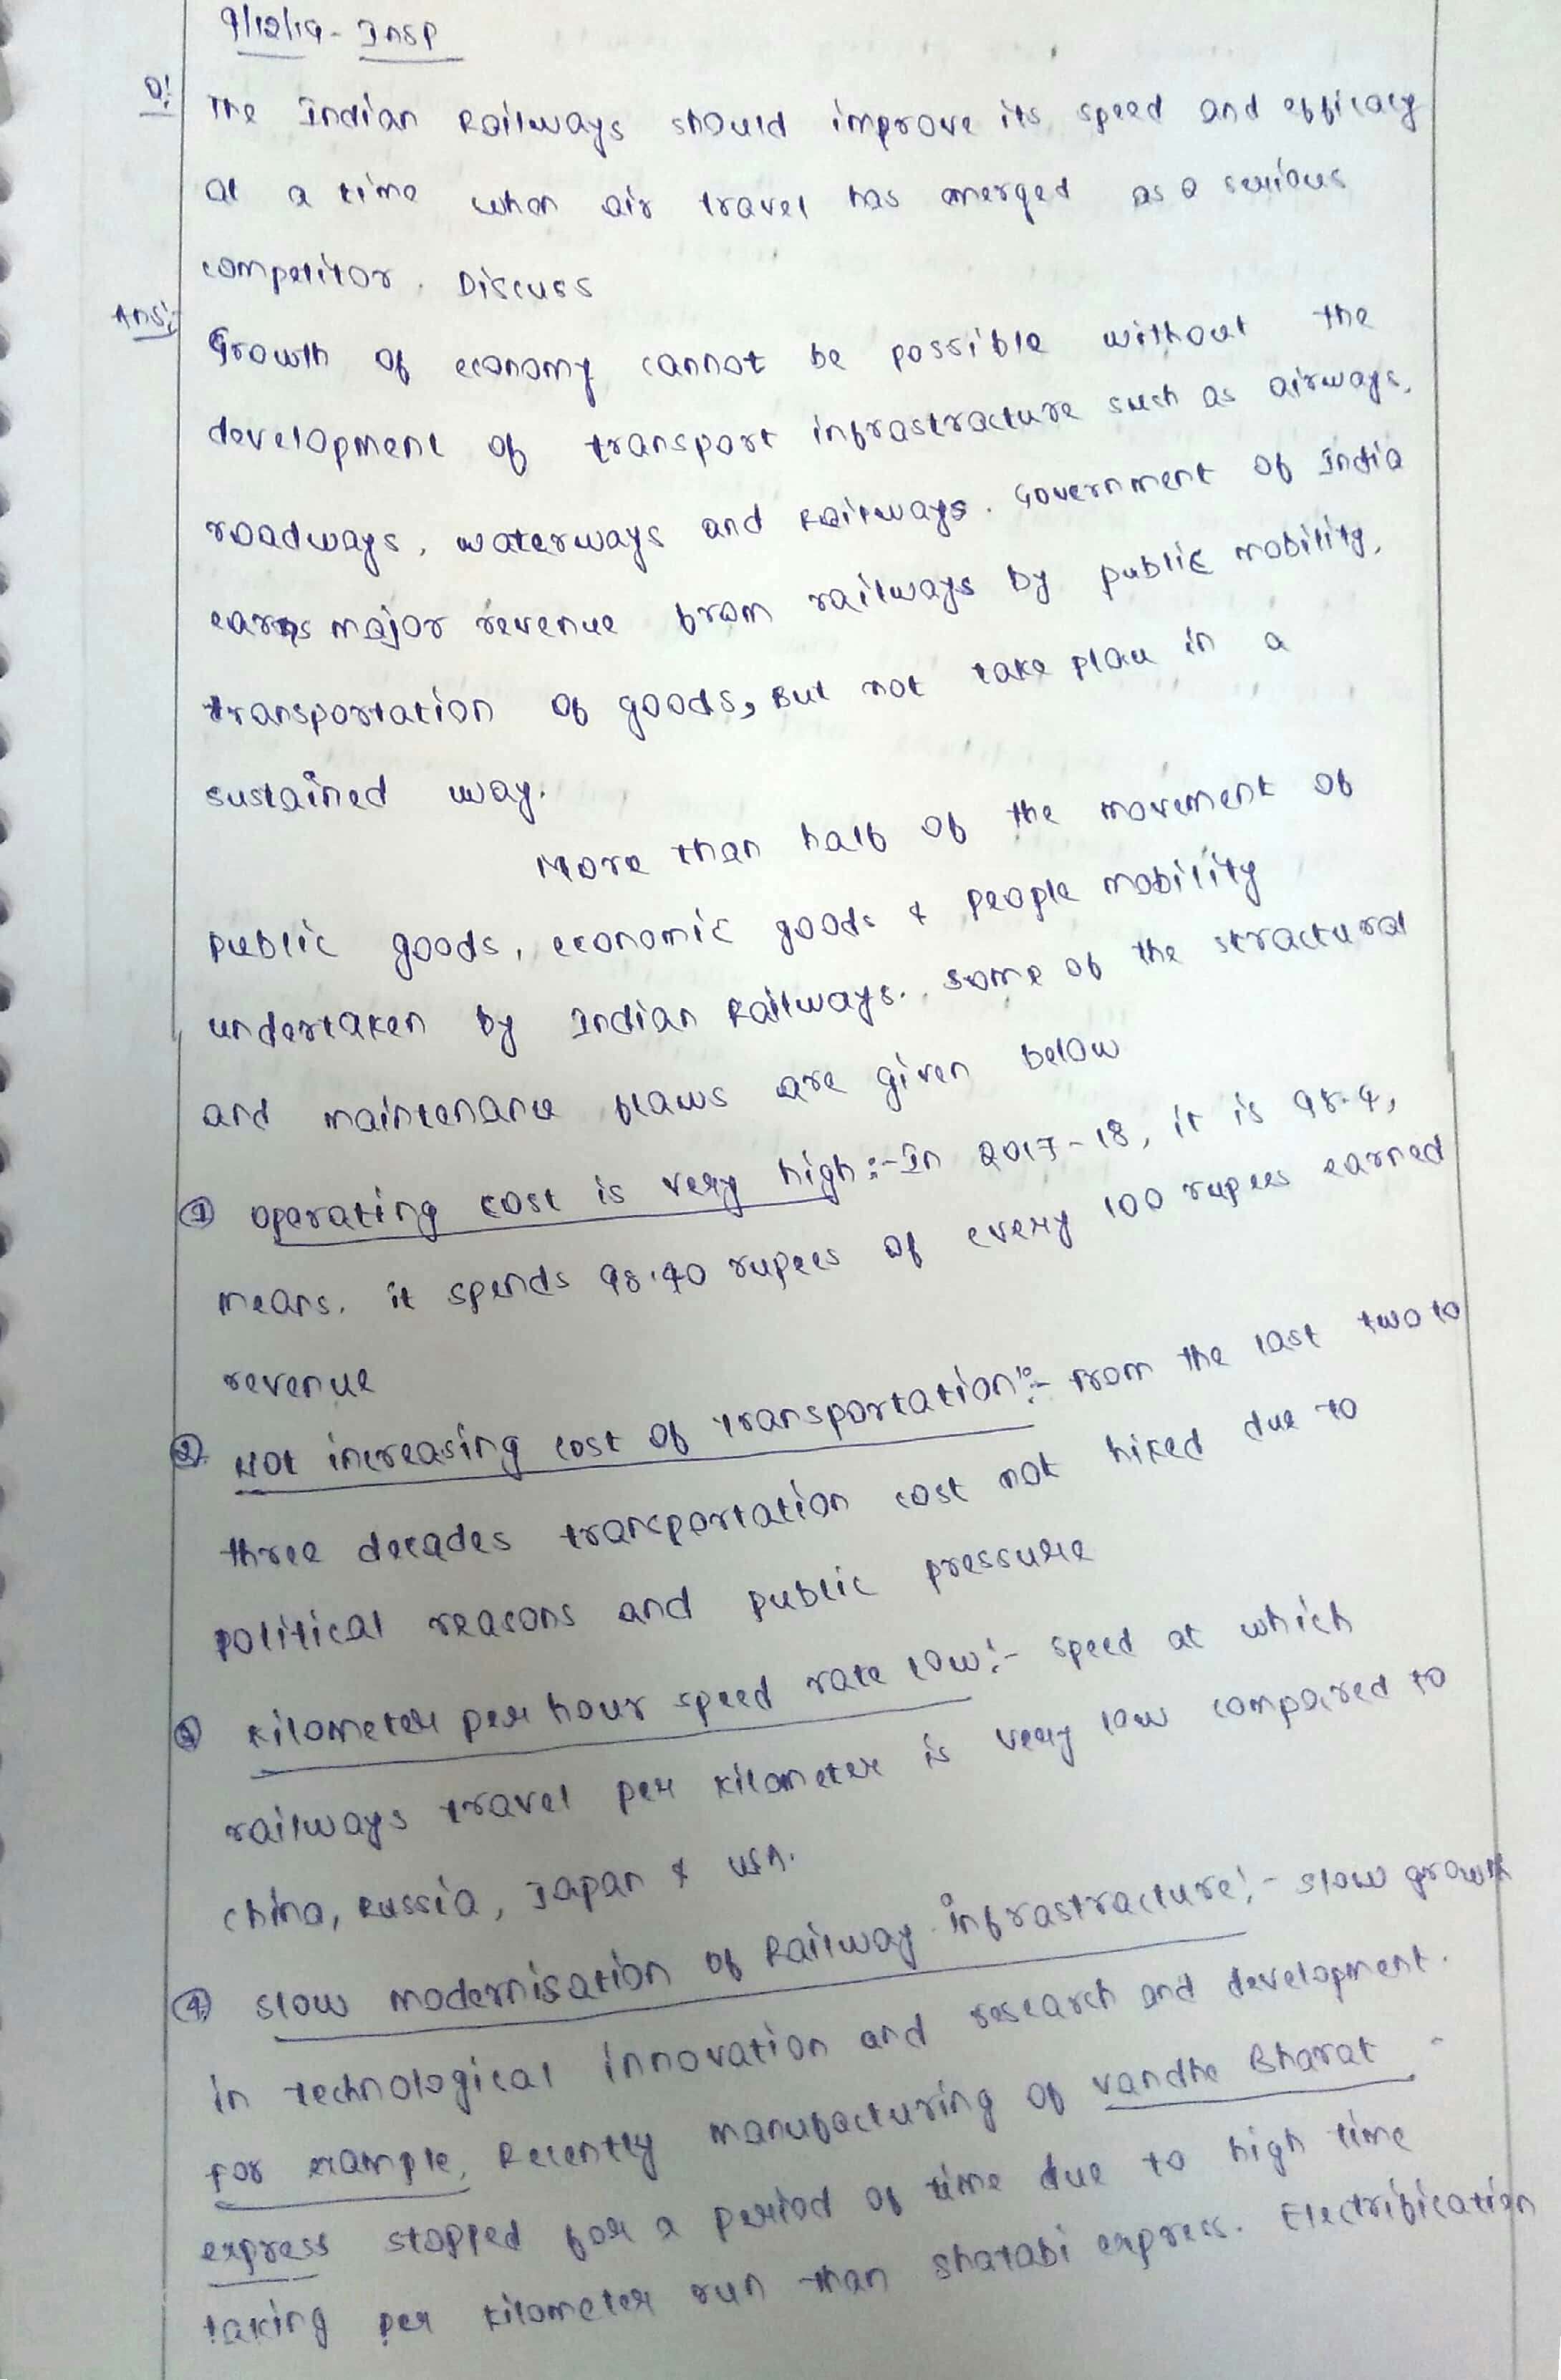 9/12/19 - INSP
Q! The Indian Railways should improve its speed and efficacy
at a time when air travel has emerged as a serious
competitor. Discuss
Ans:- Growth of economy cannot be possible without the
development of transport infrastracture such as airways,
roadways, waterways and Railways. Government of India
earns major revenue from railways by public mobility,
transportation of goods, But not take place in a
sustained way.
More than half of the movement of
public goods, economic goods & people mobility
undertaken by Indian Railways. some of the stractural
and maintenance flaws are given below
① operating cost is very high :- In 2017-18, it is 98.4,
means. it spends 98.40 rupees of every 100 rupees earned
revenue
② Not increasing cost of transportation :- From the last two to
three decades transportation cost not hiked due to
political reasons and public pressure
③ Kilometer per hour speed rate low :- speed at which
railways travel per kilometer is very low compared to
china, Russia, Japan & USA.
④ slow modernisation of Railway infrastracture :- slow growth
in technological innovation and research and development.
For example, Recently manufacturing of vandhe Bharat
express stopped for a period of time due to high time
taking per kilometer run than shatabi express. Electrification